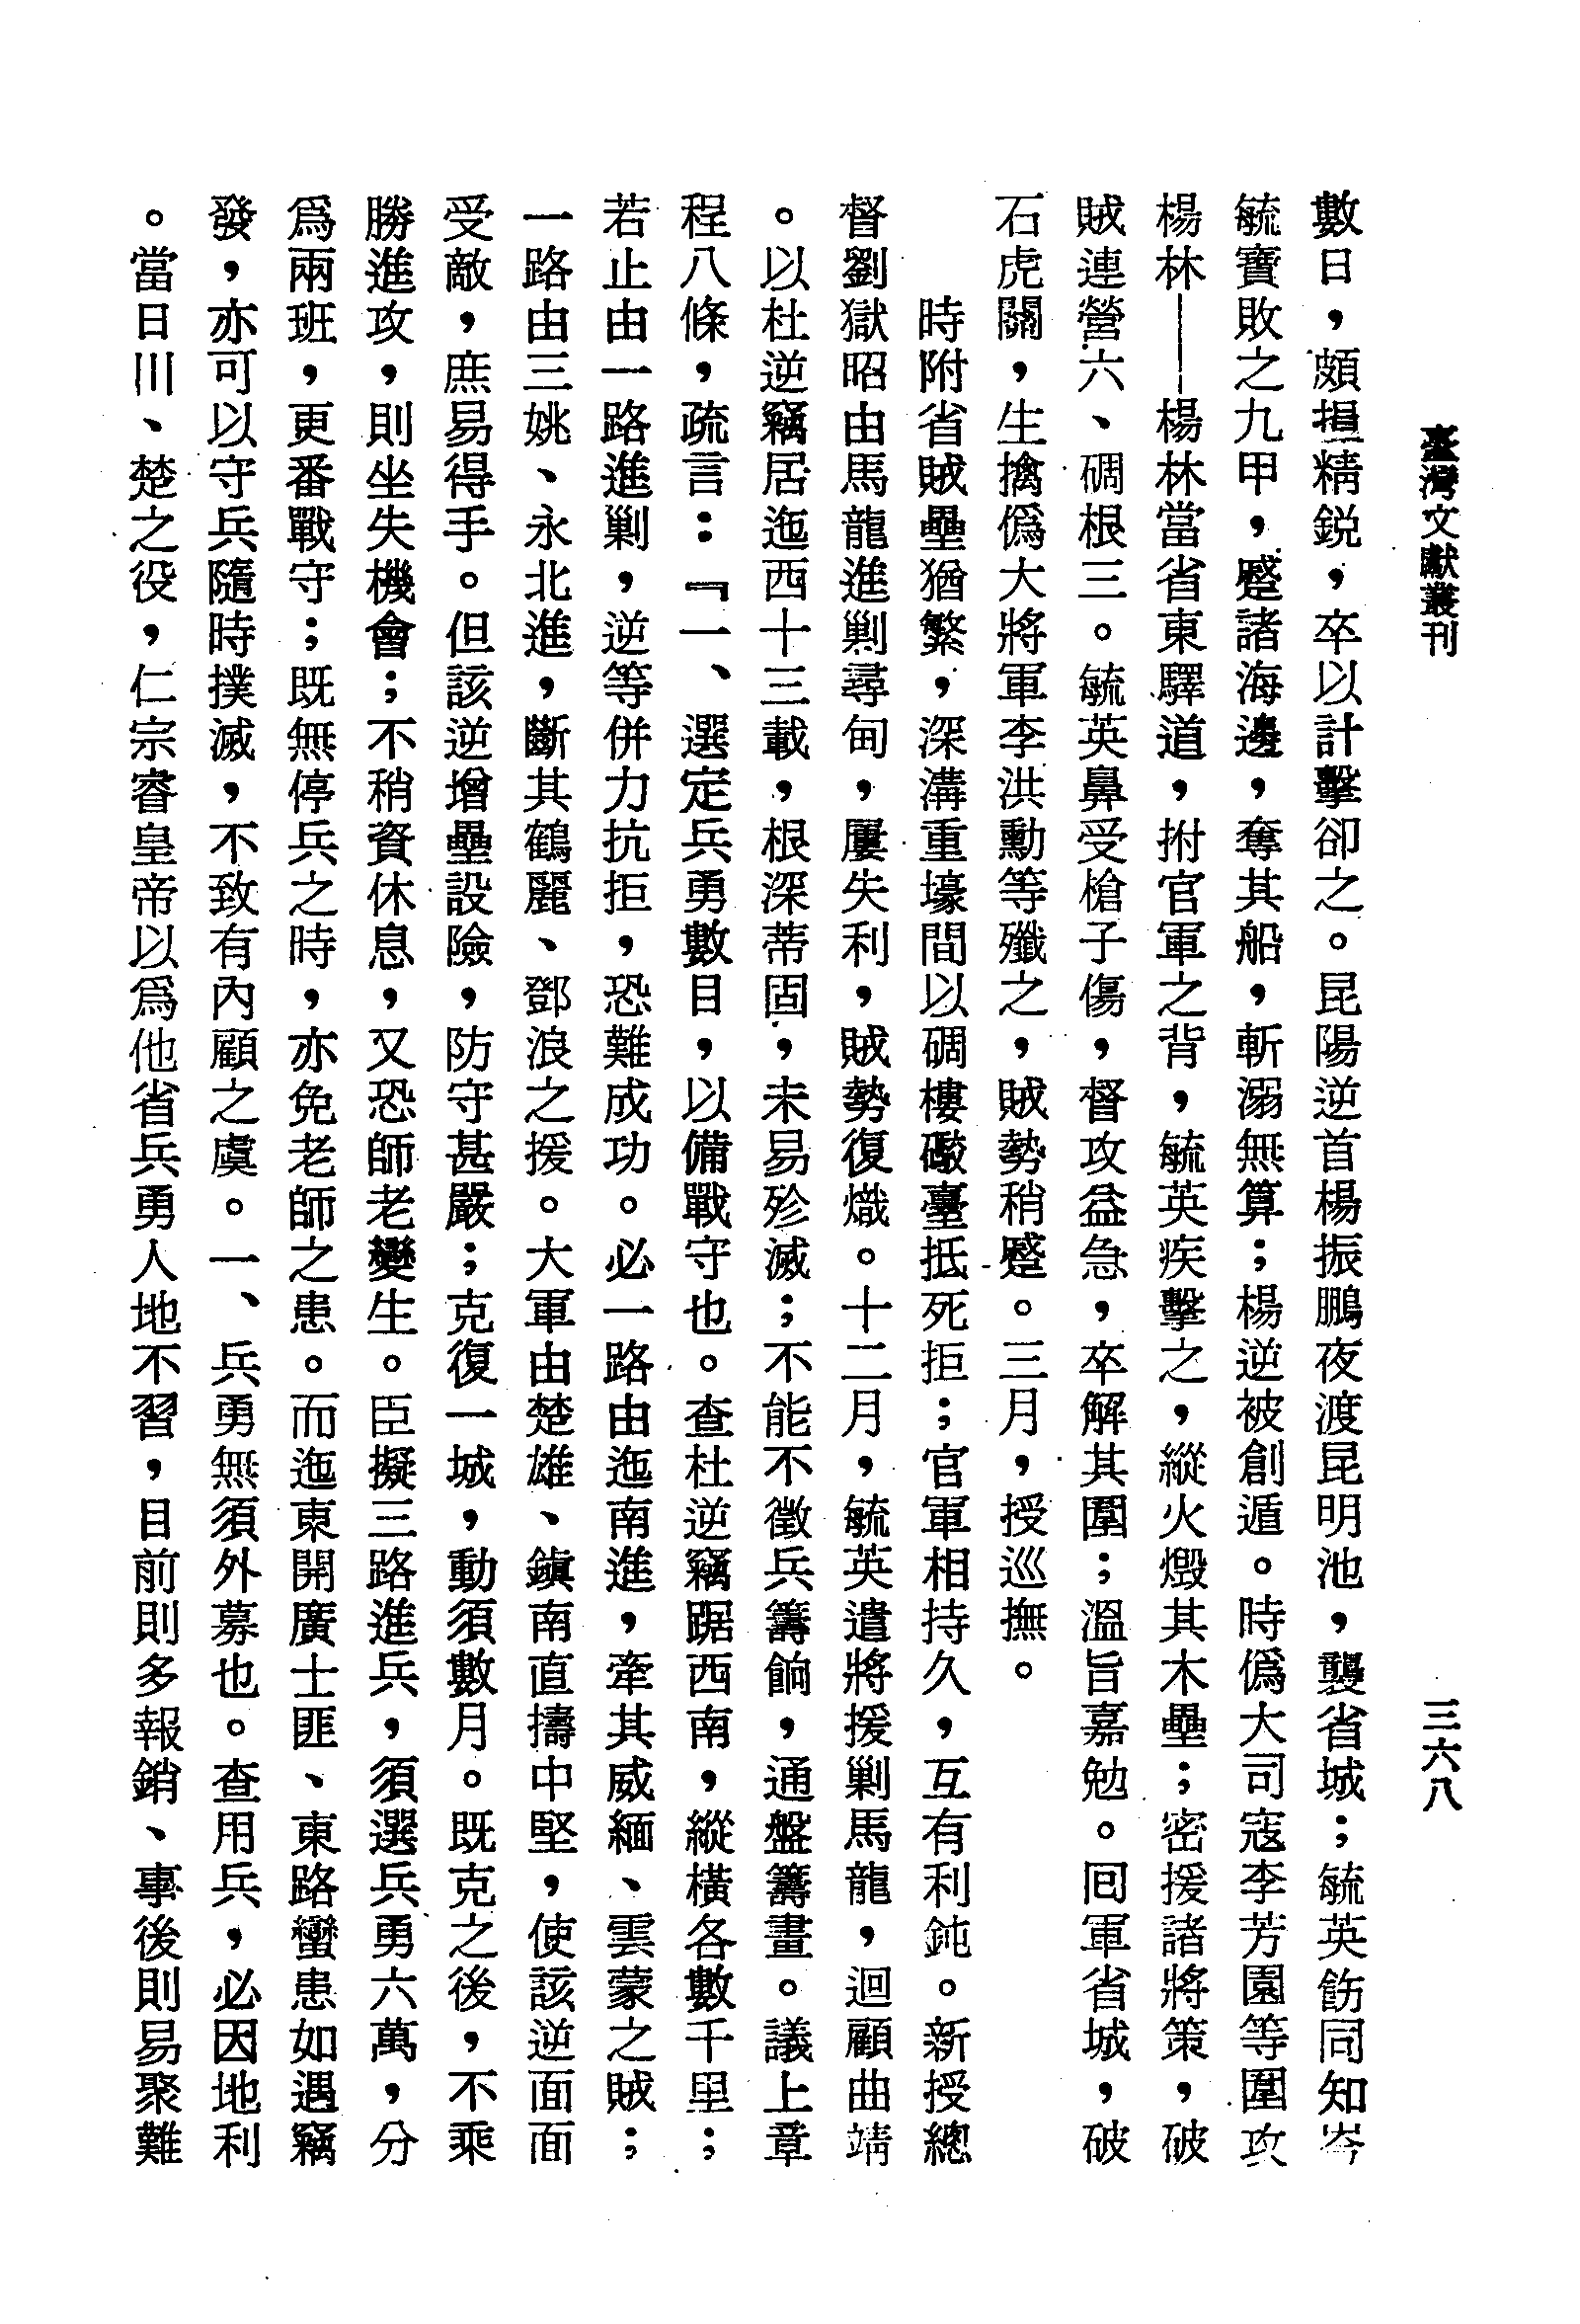 臺灣文獻叢刊
三六八
數日，頗損精銳，卒以計擊卻之。昆陽逆首楊振鵬夜渡昆明池，襲省城；毓英飭同知岑
毓寶敗之九甲，蹙諸海邊，奪其船，斬溺無算；楊逆被創遁。時僞大司寇李芳園等圍攻
楊林——楊林當省東驛道，拊官軍之背，毓英疾擊之，縱火燬其木壘；密援諸將策，破
賊連營六、碉根三。毓英鼻受槍子傷，督攻益急，卒解其圍；溫旨嘉勉。囘軍省城，破
石虎關，生擒僞大將軍李洪勳等殲之，賊勢稍蹙。三月，授巡撫。
時附省賊壘猶繁，深溝重壕間以碉樓礮臺抵死拒；官軍相持久，互有利鈍。新授總
督劉嶽昭由馬龍進剿尋甸，屢失利，賊勢復熾。十二月，毓英遣將援剿馬龍，迴顧曲靖
。以杜逆竊居迤西十三載，根深蒂固，未易殄滅；不能不徵兵籌餉，通盤籌畫。議上章
程八條，疏言：『一、選定兵勇數目，以備戰守也。查杜逆竊踞西南，縱橫各數千里；
若止由一路進剿，逆等併力抗拒，恐難成功。必一路由迤南進，牽其威緬、雲蒙之賊；
一路由三姚、永北進，斷其鶴麗、鄧浪之援。大軍由楚雄、鎭南直擣中堅，使該逆面面
受敵，庶易得手。但該逆增壘設險，防守甚嚴；克復一城，動須數月。既克之後，不乘
勝進攻，則坐失機會；不稍資休息，又恐師老變生。臣擬三路進兵，須選兵勇六萬，分
爲兩班，更番戰守；既無停兵之時，亦免老師之患。而迤東開廣士匪、東路蠻患如遇竊
發，亦可以守兵隨時撲滅，不致有內顧之虞。一、兵勇無須外募也。查用兵，必因地利
。當日川、楚之役，仁宗睿皇帝以爲他省兵勇人地不習，目前則多報銷、事後則易聚難